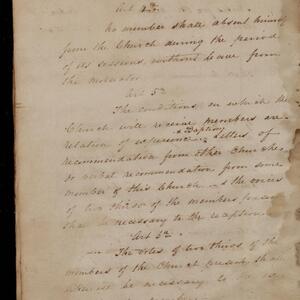 Art 4th
No member shall absent himself
from the Church during the period
of its sessions, without leave from
the moderator
Art 5th
The conditions on which the
Church will receive members are
relation of experience & Baptism, letters of
recommendation from other Churches
or verbal recommendation from some
member of this Church & the voices
of two thirds of the members present
shall be necessary to the reception
Art
The votes of two thirds of the
members of the Church present shall
be necessary to